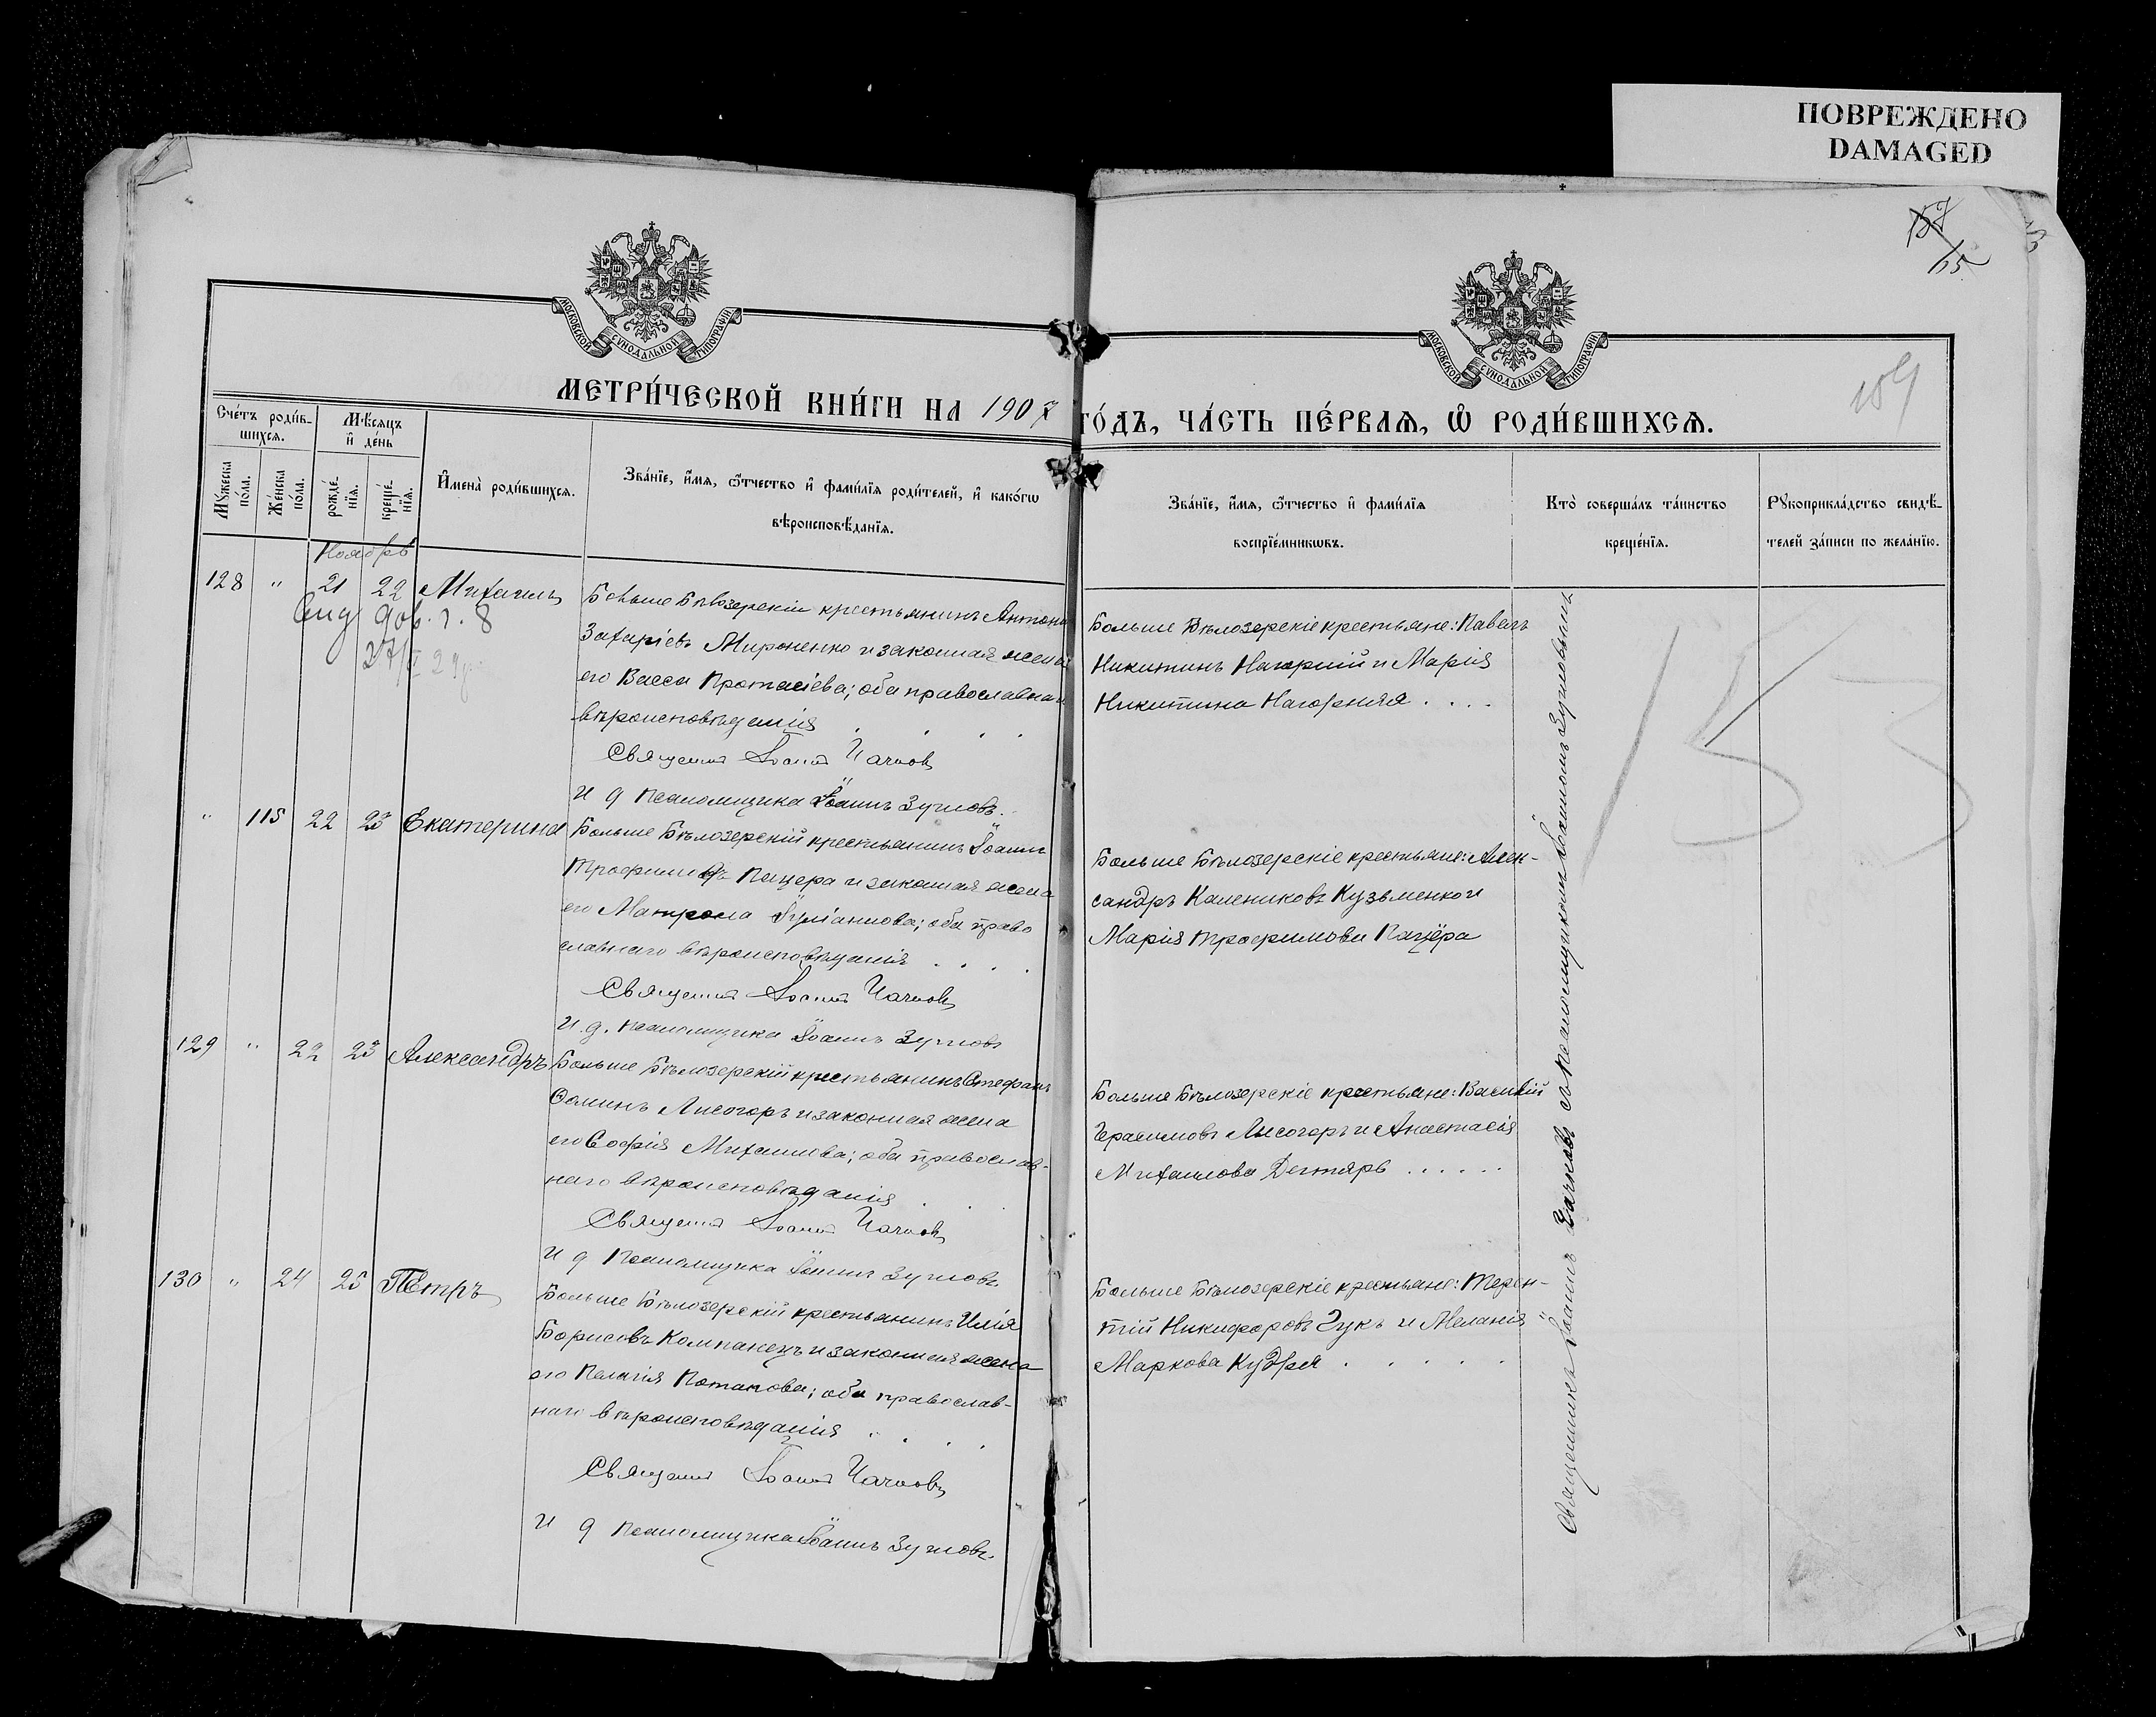 ПОВРЕЖДЕНО
DAMAGED
157
115
159
МОСКОВСКОЙ СѴНОДАЛЬНОЙ ТИПОГРАФІИ
МОСКОВСКОЙ СѴНОДАЛЬНОЙ ТИПОГРАФІИ
МЕТРИ́ЧЕСКОЙ КНИ́ГИ НА 1907 ГО́ДЪ, ЧА́СТЬ ПЕ́РВАѦ, Ѽ РОДИ́ВШИХСѦ.
Сче́тъ роди́в-
шихсѧ.
Мѣ́сяцъ
и҆ де́нь
Мꙋ́жеска
по́ла.
Же́нска
по́ла.
рожде́-
нїѧ.
креще́-
нїѧ.
И҆мена̀ роди́вшихсѧ.
Зва́нїе, и҆́мѧ, ѻ҆́тчество и҆ фами́лїѧ роди́телей, и҆ како́гѡ
вѣроисповѣ́данїѧ.
Зва́нїе, и҆́мѧ, ѻ҆́тчество и҆ фами́лїѧ
воспрїе́мникѡвъ.
Кто̀ соверша́лъ та́инство
креще́нїѧ.
Рꙋкоприкла́дство свидѣ́-
телей за́писи по жела́нїю.
Ноябрь
128 " 21 22 Михаилъ
Больше Бѣлозерскій крестьянинъ Антонъ
Захаріевъ Мироненко и законная жена
его Васса Протасіева; оба православнаго
вѣроисповѣданія . . . .
Священник Іоанн Чачков
И д псаломщика Іоаннъ Зугловъ.
Больше Бѣлозерскіе крестьяне: Павелъ
Никитинъ Нагорний и Марія
Никитина Нагорняя . . . .
" 115 22 23 Екатерина
Больше Бѣлозерскій крестьянинъ Іоаннъ
Трофимовъ Пацера и законная жена
его Матрона Іуліанова; оба право
славнаго вѣроисповѣданія . . . .
Священник Іоанн Чачков
И.д. псаломщика Іоаннъ Зугловъ
Больше Бѣлозерскіе крестьяне: Алек-
сандръ Калениковъ Кузьменко и
Марія Трофимова Пацёра
129 " 22 23 Александръ
Больше Бѣлозерскій крестьянинъ Стефанъ
Ѳоминъ Лисогоръ и законная жена
его Софія Михаилова; оба православ-
наго вѣроисповѣданія . . .
Священник Іоанн Чачков
И д псаломщика Іоаннъ Зугловъ.
Больше Бѣлозерскіе крестьяне: Василій
Герасимовъ Лисогоръ и Анастасія
Михаилова Дегтярь . . . . . .
130 " 24 25 Петръ
Больше Бѣлозерскій крестьянинъ Илія
Борисовъ Компанецъ и законная жена
его Пелагія Потапова; оба православ-
наго вѣроисповѣданія . . . .
Священник Іоанн Чачков
И д псаломщика Іоаннъ Зугловъ.
Больше Бѣлозерскіе крестьяне: Терен-
тій Никифоровъ Гукъ и Меланія
Маркова Кудря . . . . .
Священникъ Іоаннъ Чачковъ съ псаломщикомъ Іоанномъ Зугловымъ
153